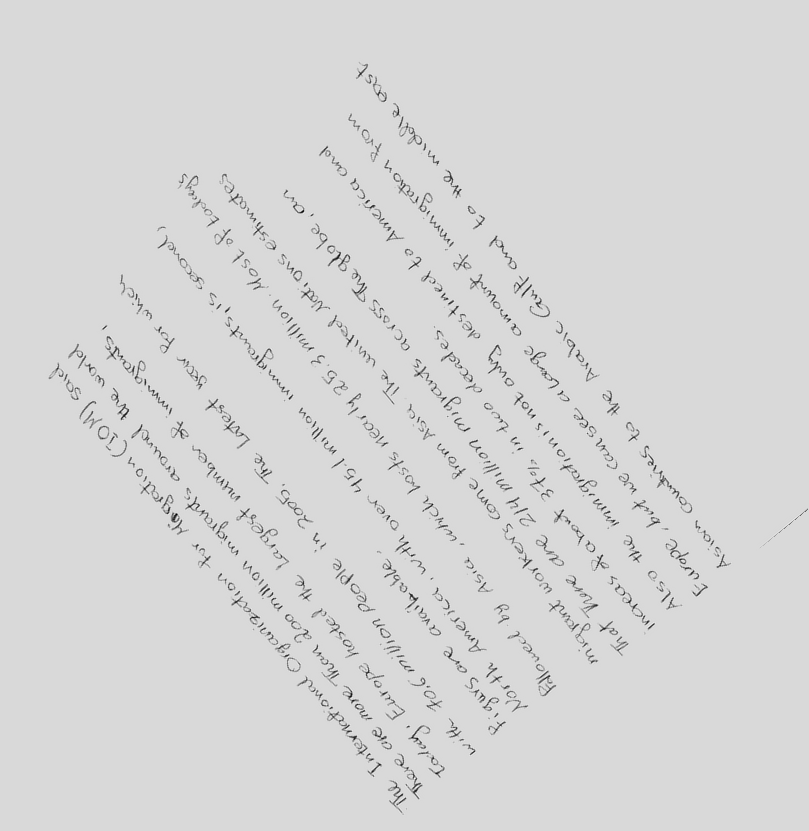 The International Organization for Migration (IOM) said
There are more Than 200 million migrants around the world
today. Europe hosted the Largest number of immigrants,
with 70.6 million people in 2005, The Latest year for which
Figurs are available.
North America, with over 45.1 million immigrants, is second,
followed by Asia, which hosts nearly 25.3 million. Most of today's
migrant workers come from Asia The united Nations estimates
That here are 214 million migrants across The globe, an
increas of about 37% in two decades.
Also the immigration is not only destined to America and
Europe, but we can see a large amount of immigration from
Asian countries to the Arabic Gulf and to the middle east